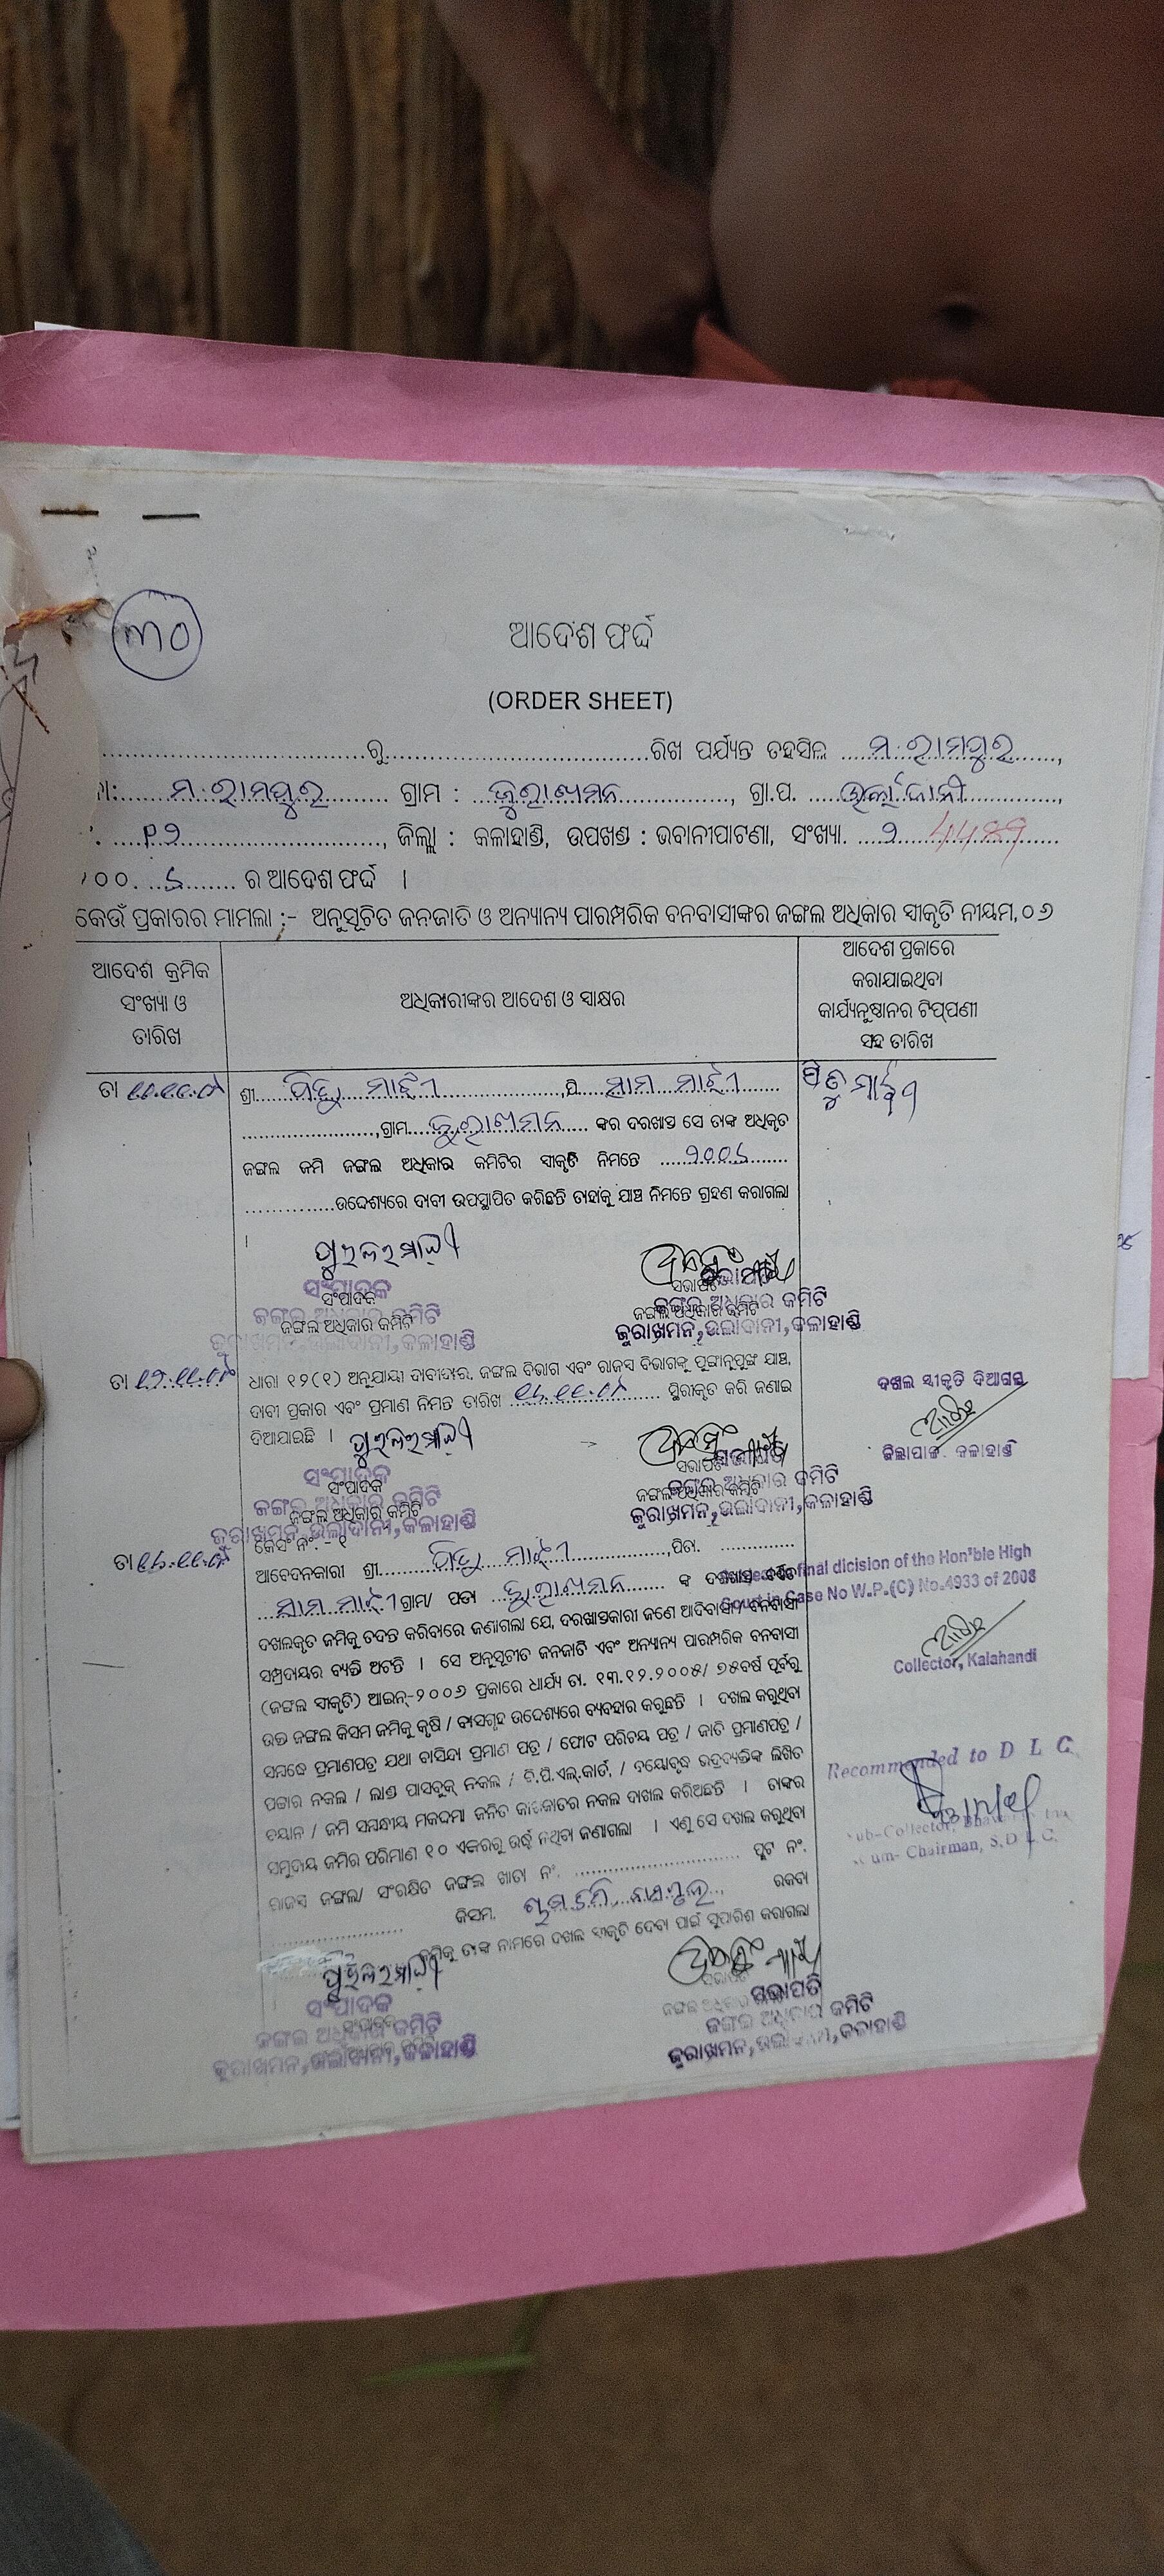 ୩୦
ଆଦେଶ ଫର୍ଦ୍ଦ
(ORDER SHEET)
ରୁ ରିଖ ପର୍ଯ୍ୟନ୍ତ ତହସିଲ ମ.ରାମପୁର,
ମ.ରାମପୁର ଗ୍ରାମ : ଜୁରାଖମନ, ଗ୍ରା.ପ.
ଜିଲ୍ଲା : କଳାହାଣ୍ଡି, ଉପଖଣ୍ଡ : ଭବାନୀପାଟଣା, ସଂଖ୍ୟା.
ର ଆଦେଶ ଫର୍ଦ୍ଦ ।
କେଉଁ ପ୍ରକାରର ମାମଲା :- ଅନୁସୂଚିତ ଜନଜାତି ଓ ଅନ୍ୟାନ୍ୟ ପାରମ୍ପରିକ ବନବାସୀଙ୍କର ଜଙ୍ଗଲ ଅଧିକାର ସ୍ୱୀକୃତି ନୀୟମ,୦୬
ଆଦେଶ କ୍ରମିକ ସଂଖ୍ୟା ଓ ତାରିଖ
ଅଧିକାରୀଙ୍କର ଆଦେଶ ଓ ସ୍ୱାକ୍ଷର
ଆଦେଶ ପ୍ରକାରେ
କରାଯାଇଥିବା
କାର୍ଯ୍ୟନୁଷ୍ଠାନର ଟିପ୍ପଣୀ
ସହ ତାରିଖ
ତା
ଶ୍ରୀ ମାଝୀ ,ପି ମାଝୀ
,ଗ୍ରାମ ଜୁରାଖମନ ଙ୍କର ଦରଖାସ୍ତ ସେ ତାଙ୍କ ଅଧିକୃତ
ଜଙ୍ଗଲ ଜମି ଜଙ୍ଗଲ ଅଧିକାର କମିଟିର ସ୍ୱୀକୃତି ନିମନ୍ତେ
ଉଦ୍ଦେଶ୍ୟରେ ଦାବୀ ଉପସ୍ଥାପିତ କରିଛନ୍ତି ତାହାକୁ ଯାଞ୍ଚ ନିମନ୍ତେ ଗ୍ରହଣ କରାଗଲା
।
ସଂପାଦକ
ଜଙ୍ଗଲ ଅଧିକାର କମିଟି
ସଭାପତି
ଜଙ୍ଗଲ ଅଧିକାର କମିଟି
ଜୁରାଖମନ,ଉର୍ଲାଦାନୀ,କଳାହାଣ୍ଡି
ତା
ଧାରା ୧୨(୧) ଅନୁଯାୟୀ ଦାବୀଦାର, ଜଙ୍ଗଲ ବିଭାଗ ଏବଂ ରାଜସ୍ୱ ବିଭାଗଙ୍କୁ ପୁଙ୍ଖାନୁପୁଙ୍ଖ ଯାଞ୍ଚ,
ଦାବୀ ପ୍ରକାର ଏବଂ ପ୍ରମାଣ ନିମନ୍ତ ତାରିଖ ସ୍ଥିରୀକୃତ କରି ଜଣାଇ
ଦିଆଯାଇଛି ।
ଦଖଲ ସ୍ୱୀକୃତି ଦିଆଗଲା
ଜିଲ୍ଲାପାଳ କଳାହାଣ୍ଡି
ସଂପାଦକ
ଜଙ୍ଗଲ ଅଧିକାର କମିଟି
ଜୁରାଖମନ,ଉର୍ଲାଦାନୀ,କଳାହାଣ୍ଡି
ସଭାପତି
ଜଙ୍ଗଲ ଅଧିକାର କମିଟି
ଜୁରାଖମନ,ଉର୍ଲାଦାନୀ,କଳାହାଣ୍ଡି
କେସ୍ ନଂ. - ୧
ତା
ଆବେଦନକାରୀ ଶ୍ରୀ ମାଝୀ ,ପିତା.
ମାଝୀ ଗ୍ରାମ/ ପଡା ଜୁରାଖମନ ଙ୍କ ଦରଖାସ୍ତ ବର୍ଣ୍ଣିତ
final dicision of the Hon'ble High
Court in Case No W.P.(C) No.4933 of 2008
Collector, Kalahandi
ଦଖଲକୃତ ଜମିକୁ ତଦନ୍ତ କରିବାରେ ଜଣାଗଲା ଯେ, ଦରଖାସ୍ତକାରୀ ଜଣେ ଆଦିବାସୀ/ ବନବାସୀ
ସମ୍ପ୍ରଦାୟର ବ୍ୟକ୍ତି ଅଟନ୍ତି । ସେ ଅନୁସୂଚୀତ ଜନଜାତି ଏବଂ ଅନ୍ୟାନ୍ୟ ପାରମ୍ପରିକ ବନବାସୀ
(ଜଙ୍ଗଲ ସ୍ୱୀକୃତି) ଆଇନ୍-୨୦୦୬ ପ୍ରକାରେ ଧାର୍ଯ୍ୟ ତା. ୧୩.୧୨.୨୦୦୫/ ୭୫ବର୍ଷ ପୂର୍ବରୁ
ଉକ୍ତ ଜଙ୍ଗଲ କିସମ ଜମିକୁ କୃଷି / ବାସଗୃହ ଉଦ୍ଦେଶ୍ୟରେ ବ୍ୟବହାର କରୁଛନ୍ତି । ଦଖଲ କରୁଥିବା
ସମ୍ବନ୍ଧେ ପ୍ରମାଣପତ୍ର ଯଥା ବାସିନ୍ଦା ପ୍ରମାଣ ପତ୍ର / ଫୋଟ ପରିଚୟ ପତ୍ର / ଜାତି ପ୍ରମାଣପତ୍ର /
ପଟ୍ଟାର ନକଲ / ଲାଣ୍ଡ ପାସବୁକ୍ ନକଲ / ବି.ପି.ଏଲ୍.କାର୍ଡ, / ବୟୋବୃଦ୍ଧ ଭଦ୍ରବ୍ୟକ୍ତିଙ୍କ ଲିଖିତ
ବୟାନ / ଜମି ସମ୍ବନ୍ଧୀୟ ମକଦ୍ଦମା ଜନିତ କାଗଜାତର ନକଲ ଦାଖଲ କରିଅଛନ୍ତି । ତାଙ୍କର
ସମୁଦାୟ ଜମିର ପରିମାଣ ୧୦ ଏକରରୁ ଉର୍ଦ୍ଧ୍ୱ ନଥିବା ଜଣାଗଲା । ଏଣୁ ସେ ଦଖଲ କରୁଥିବା
ରାଜସ୍ୱ ଜଙ୍ଗଲ/ ସଂରକ୍ଷିତ ଜଙ୍ଗଲ ଖାତା ନଂ. ପ୍ଲଟ ନଂ.
କିସମ. ରକବା
ଜମିକୁ ତାଙ୍କ ନାମରେ ଦଖଲ ସ୍ୱୀକୃତି ଦେବା ପାଇଁ ସୁପାରିଶ କରାଗଲା
Recommended to D L C.
Sub-Collector,
Cum- Chairman, S.D.L.C.
ସଂପାଦକ
ଜଙ୍ଗଲ ଅଧିକାର କମିଟି
ଜୁରାଖମନ,ଉର୍ଲାଦାନୀ,କଳାହାଣ୍ଡି
ସଭାପତି
ଜଙ୍ଗଲ ଅଧିକାର କମିଟି
ଜୁରାଖମନ,ଉର୍ଲାଦାନୀ,କଳାହାଣ୍ଡି